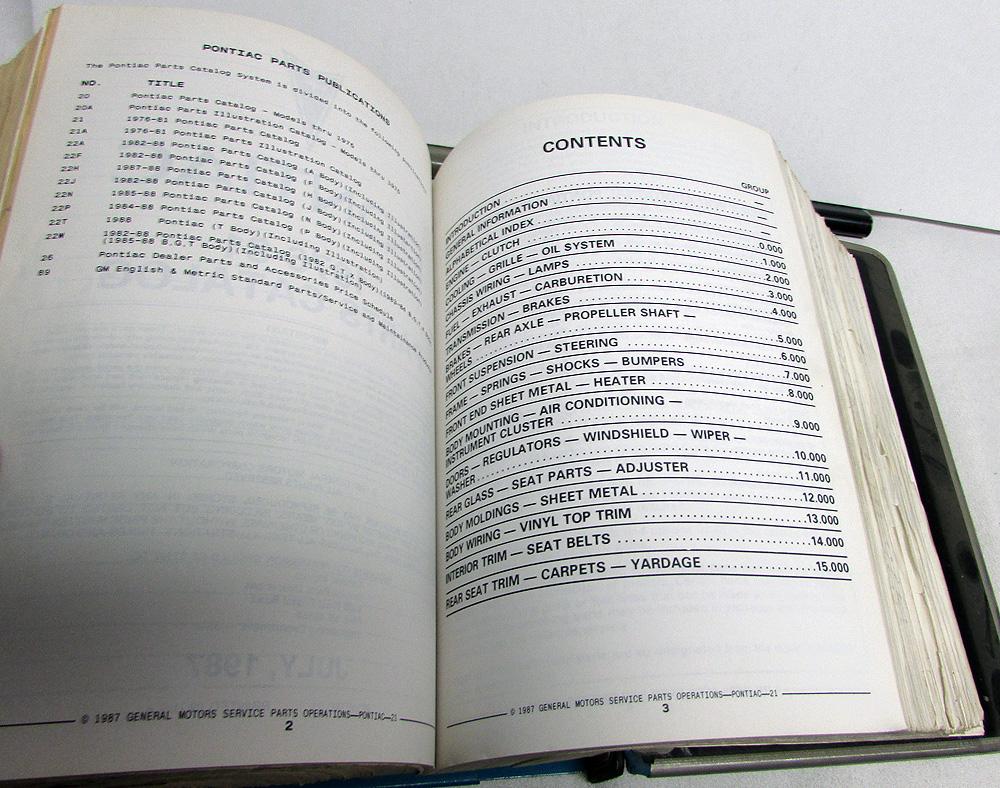 PONTIAC PARTS PUBLICATIONS
The Pontiac Parts Catalog System is divided into the following
NO. TITLE
20 Pontiac Parts Catalog - Models thru 1975
20A Pontiac Parts Illustration Catalog - Models thru 1975
21 1976-81 Pontiac Parts Catalog
21A 1976-81 Pontiac Parts Illustration Catalog
22A 1982-88 Pontiac Parts Catalog (A Body)(Including
22F 1982-88 Pontiac Parts Catalog (F Body)(Including
22H 1987-88 Pontiac Parts Catalog (H Body)(Including
22J 1982-88 Pontiac Parts Catalog (J Body)(Including
22N 1985-88 Pontiac Parts Catalog (N Body)(Including
22P 1984-88 Pontiac Parts Catalog (P Body)(Including Illustration)
22T 1988 Pontiac (T Body)(Including Illustration)
22W 1982-88 Pontiac Parts Catalog (1982 G.T.X Body)
(1985-88 B.G.T Body)(Including Illustration)
26 Pontiac Dealer Parts and Accessories Price Schedule
89 GM English & Metric Standard Parts/Service and Maintenance
JULY, 1987
© 1987 GENERAL MOTORS SERVICE PARTS OPERATIONS—PONTIAC—21
2
CONTENTS
GROUP
INTRODUCTION —
GENERAL INFORMATION —
ALPHABETICAL INDEX —
ENGINE — CLUTCH 0.000
COOLING — GRILLE — OIL SYSTEM 1.000
CHASSIS WIRING — LAMPS 2.000
FUEL — EXHAUST — CARBURETION 3.000
TRANSMISSION — BRAKES 4.000
BRAKES — REAR AXLE — PROPELLER SHAFT —
WHEELS 5.000
FRONT SUSPENSION — STEERING 6.000
FRAME — SPRINGS — SHOCKS — BUMPERS 7.000
FRONT END SHEET METAL — HEATER 8.000
BODY MOUNTING — AIR CONDITIONING —
INSTRUMENT CLUSTER 9.000
DOORS — REGULATORS — WINDSHIELD — WIPER —
WASHER 10.000
REAR GLASS — SEAT PARTS — ADJUSTER 11.000
BODY MOLDINGS — SHEET METAL 12.000
BODY WIRING — VINYL TOP TRIM 13.000
INTERIOR TRIM — SEAT BELTS 14.000
REAR SEAT TRIM — CARPETS — YARDAGE 15.000
© 1987 GENERAL MOTORS SERVICE PARTS OPERATIONS—PONTIAC—21
3